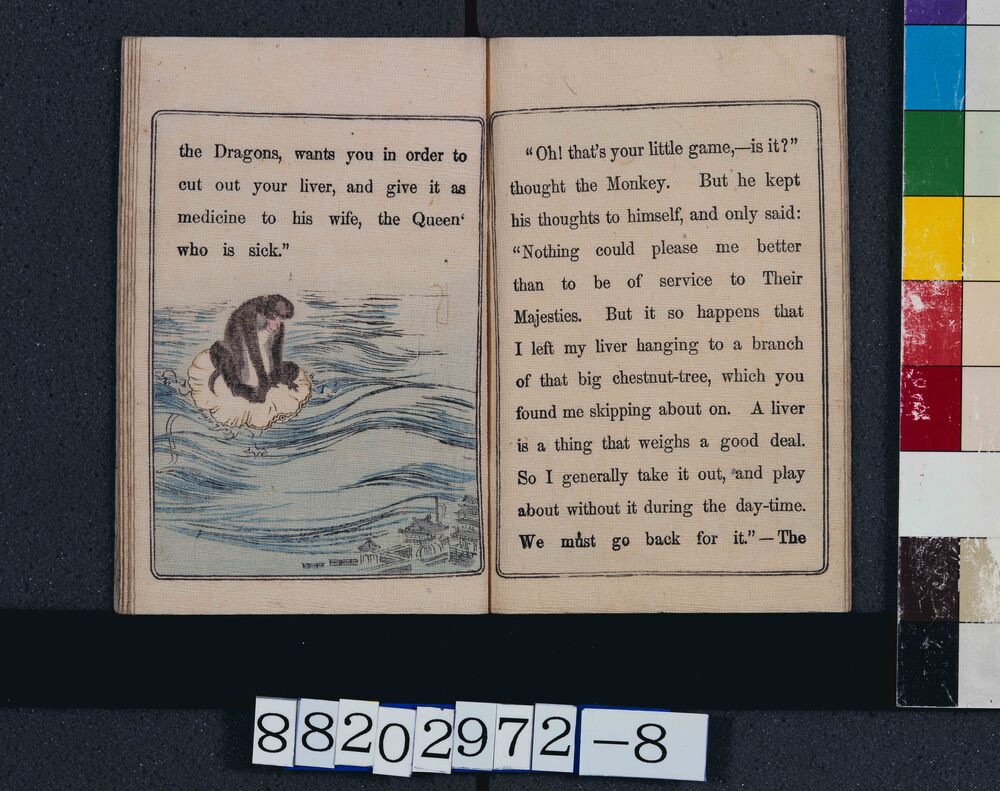 the Dragons, wants you in order to
cut out your liver, and give it as
medicine to his wife, the Queen‘
who is sick.”
“Oh! that's your little game,—is it?”
thought the Monkey. But he kept
his thoughts to himself, and only said:
“Nothing could please me better
than to be of service to Their
Majesties. But it so happens that
I left my liver hanging to a branch
of that big chestnut-tree, which you
found me skipping about on. A liver
is a thing that weighs a good deal.
So I generally take it out, and play
about without it during the day-time.
We must go back for it.”—The
88202972-8